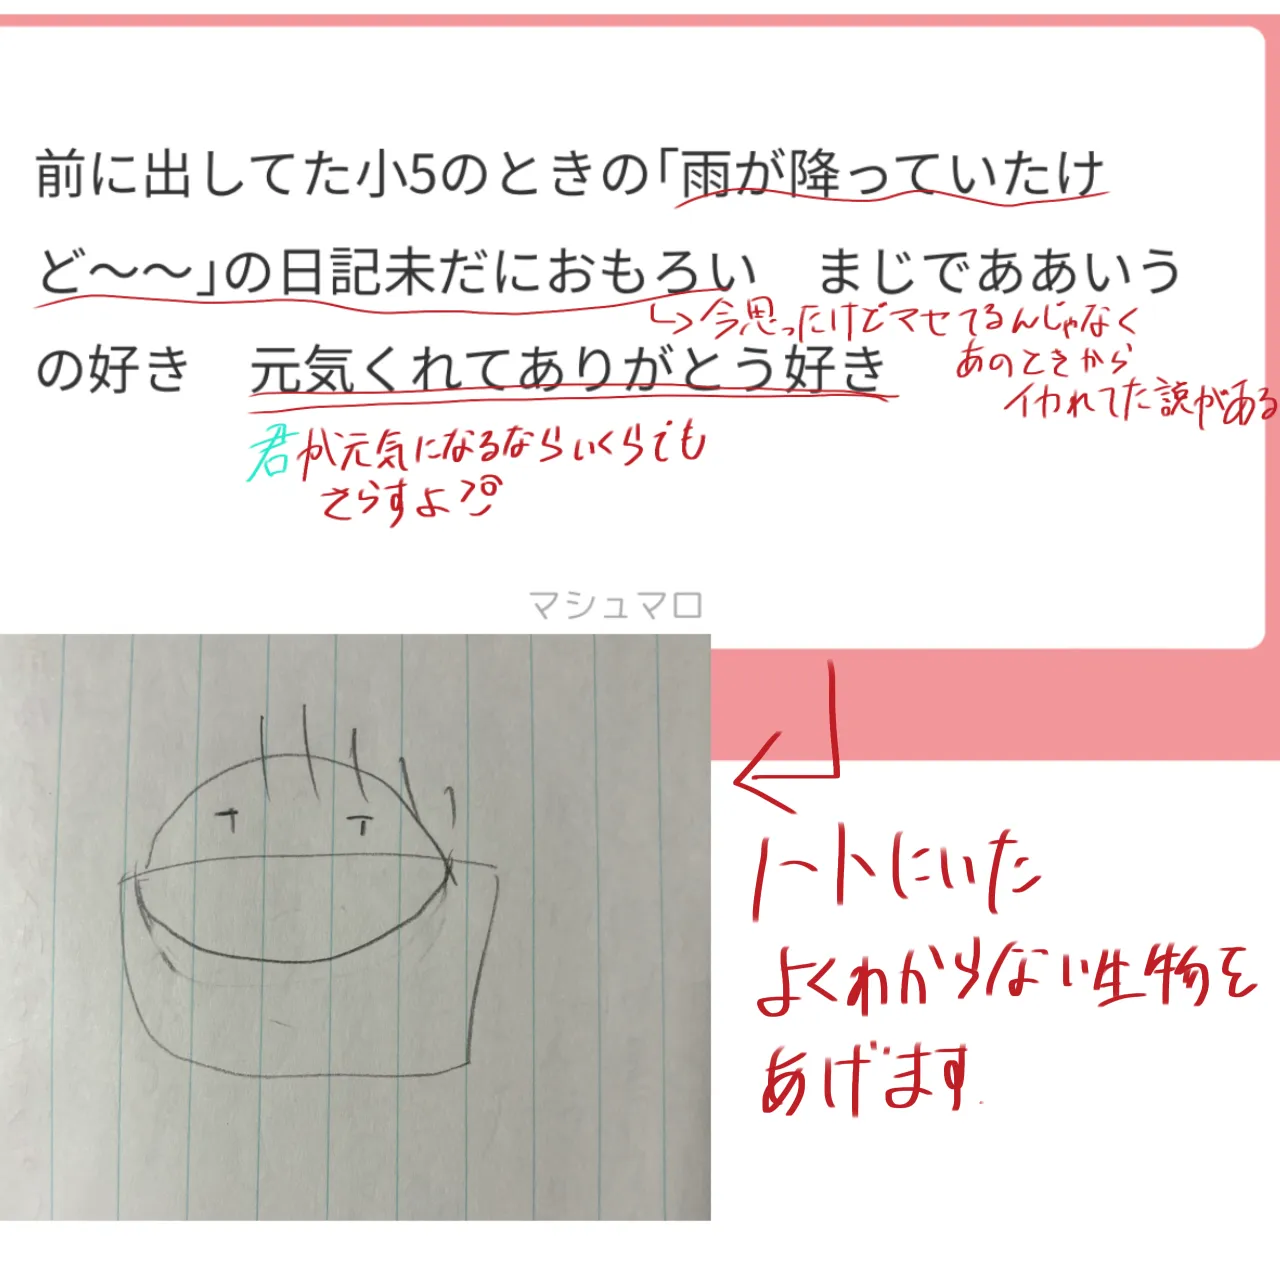 前に出してた小5のときの「雨が降っていたけ
ど〜〜」の日記未だにおもろい　まじでああいう
↳今思ったけどマセてるんじゃなく
あのときから
イカれてた説がある
の好き　元気くれてありがとう好き
君が元気になるならいくらでも
さらすよ
マシュマロ
ノートにいた
よくわからない生物を
あげます